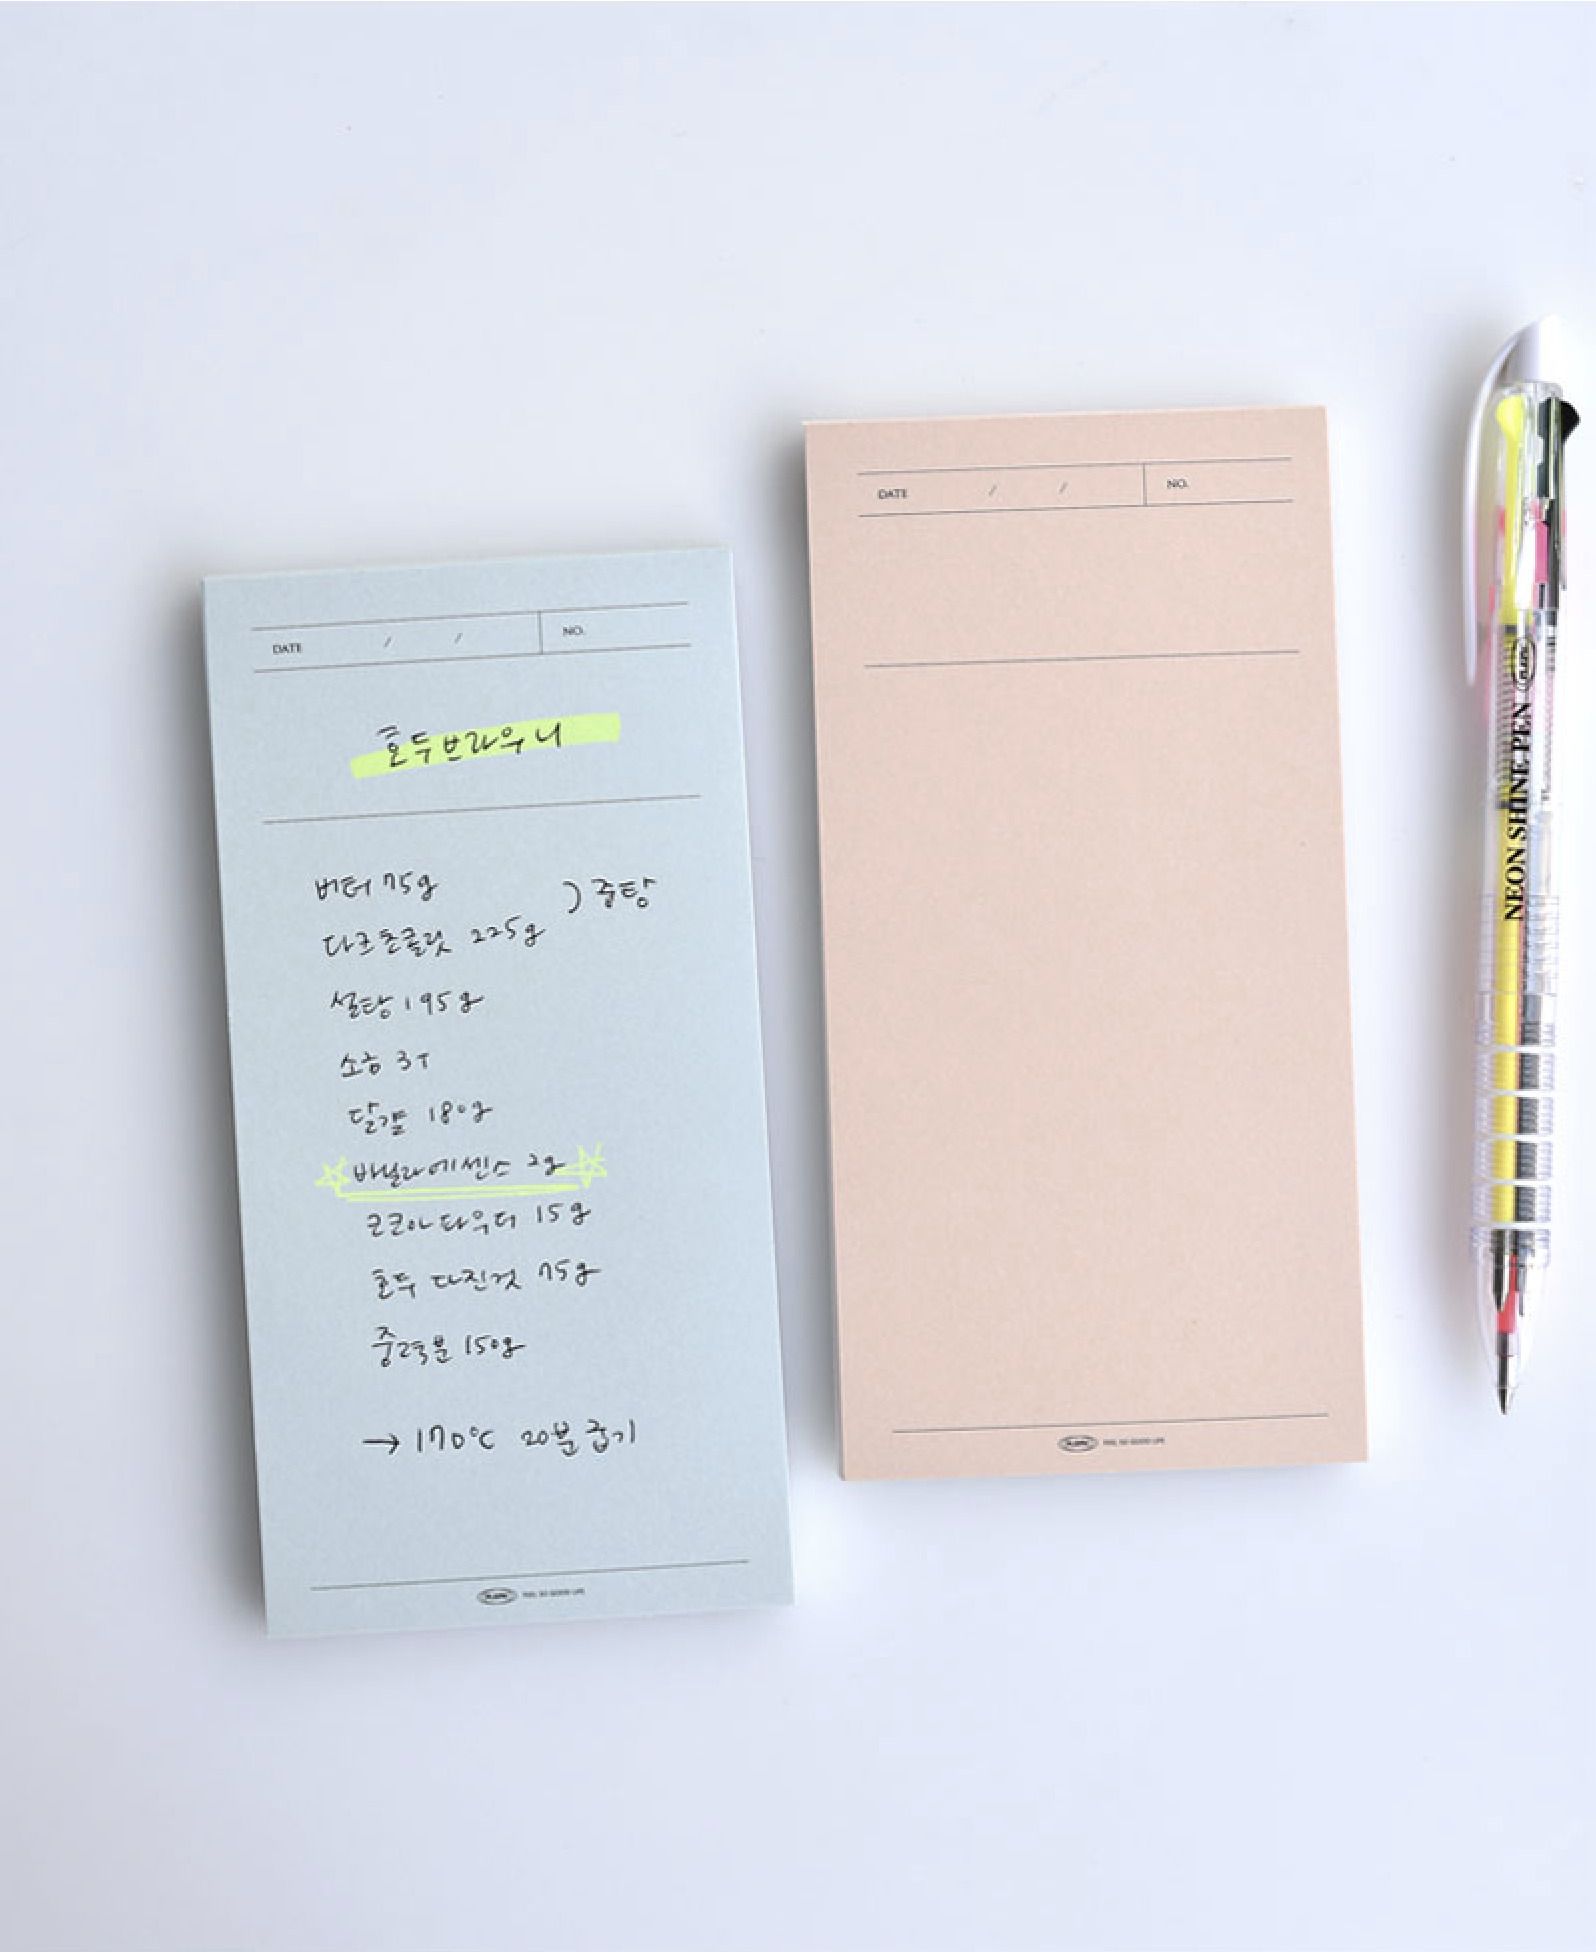 DATE / / NO.
호두브라우니
버터 75g ) 중탕
다크초콜릿 225g
설탕 195g
소금 3T
달걀 180g
바닐라에센스 2g
코코아파우더 15g
호두 다진것 75g
중력분 150g
→ 170℃ 20분 굽기
FEEL SO GOOD LIFE
DATE / / NO.
FEEL SO GOOD LIFE
NEON SHINE PEN